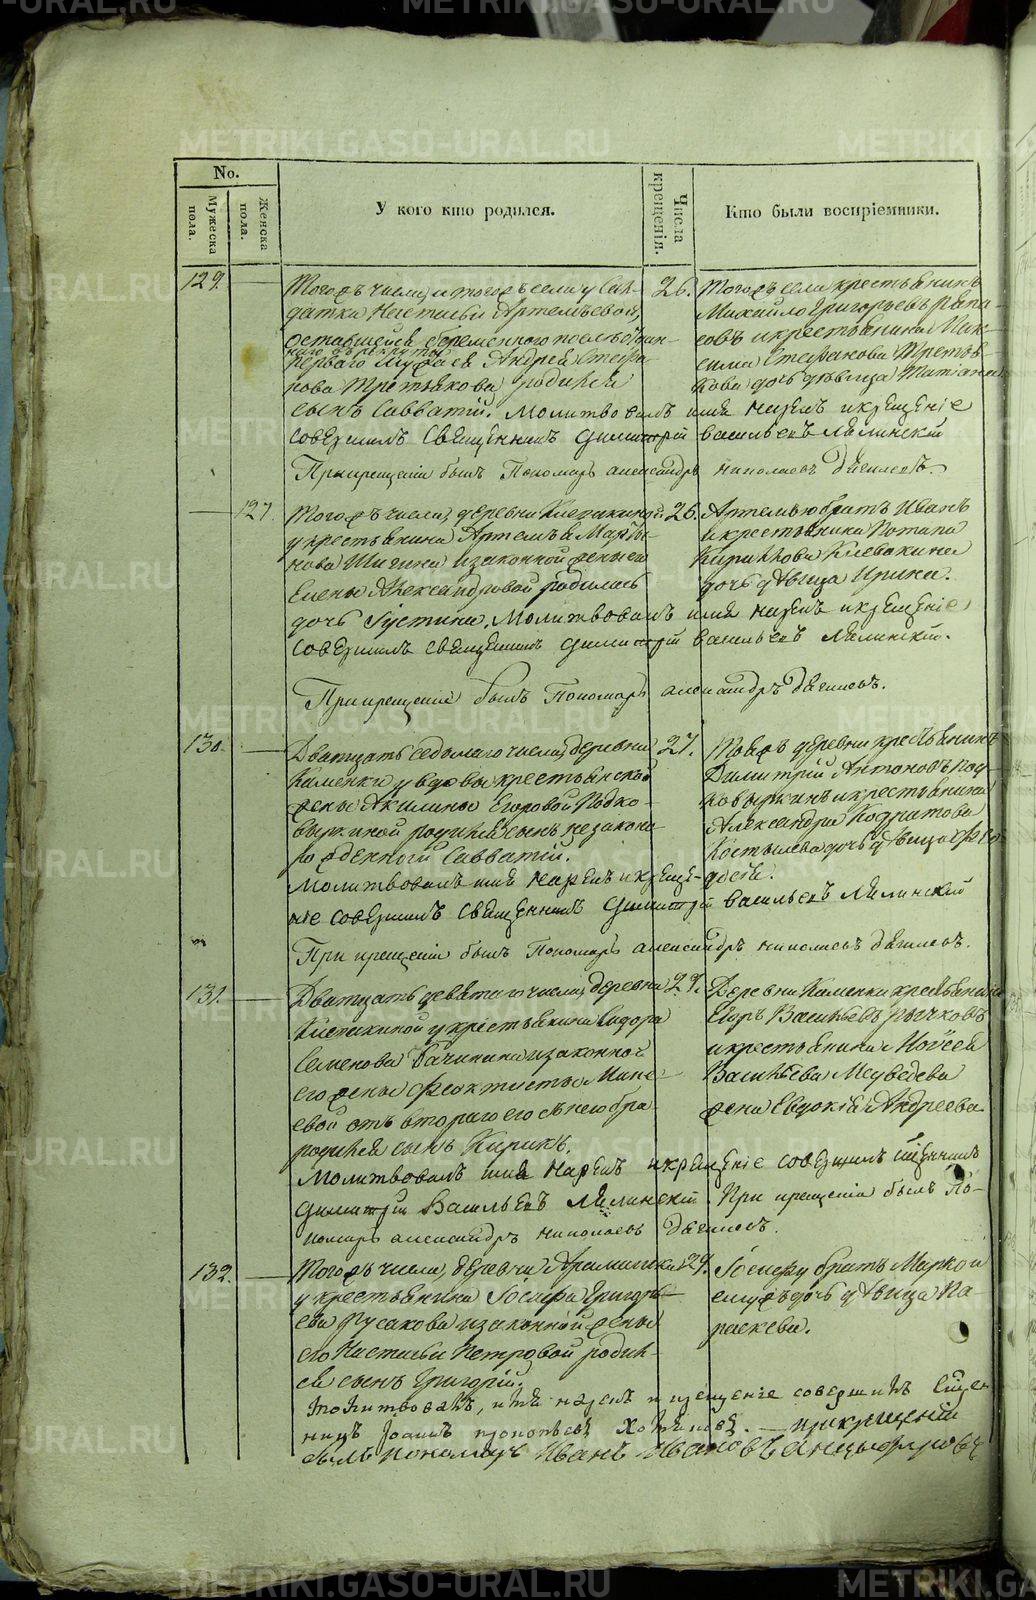 METRIKI.GASO-URAL.RU
No.
Мужеска пола.
Женска пола.
У кого кто родился.
Числа крещенія.
Кто были воспріемники.
129.
Тогожъ числа, и тогожъ села у Сал-
датки Настасьи Артемьевой,
оставшейся беременною после
перваго мужа ея Андрея Стефа
нова Третьякова родился
сынъ Савватій. Молитвовалъ имя нарекъ и крещеніе
совершилъ Священникъ Димитрій Васильевъ Лялинскій
При крещеніи былъ Пономарь Александръ Николаевъ
26.
Тогожъ села крестьянинъ
Михайло Григорьевъ
и крестьянина Мак-
сима Стефанова Третья-
кова дочь девица Татіана
127.
Тогожъ числа, деревни Клевакиной
у крестьянина Артемья Марты-
нова и законной жены его
Елены Александровой родилась
дочь Іустина. Молитвовалъ имя нарекъ и крещеніе
совершилъ священникъ Димитрій Васильевъ Лялинскій.
При крещеніи былъ Пономарь Александръ
26.
Артемью братъ Иванъ
и крестьянина Потапа
Кирилова Клевакина
дочь девица Ирина.
130.
Дватцать седьмаго числа, деревни
Каменки у вдовы крестьянской
жены Акилины Егоровой Подко-
выркиной родился сынъ незаконно
рожденной Савватій.
Молитвовалъ имя нарекъ и креще-
ніе совершилъ Священникъ Димитрій Васильевъ Лялинскій
При крещеніи былъ Пономарь Александръ Николаевъ
27.
Тойжъ деревни крестьянинъ
Димитрій Антоновъ Под-
ковыркинъ и крестьянина
Александра Кодратова
Костылева дочь девица Фео-
досія.
131.
Дватцать девятаго числа, деревни
Клевакиной у крестьянина Сидора
Семенова и законной
его жены Феоктисты
отъ втораго его съ нею бра
родился сынъ Кирикъ.
Молитвовалъ имя нарекъ и крещеніе совершилъ Священникъ
Димитрій Васильевъ Лялинскій. При крещеніи былъ По-
номарь Александръ Николаевъ
29.
Деревни Каменки крестьянинъ
Егоръ Васильевъ
и крестьянина Моисея
Васильева Медведева
жена Евдокія Андреева
132.
Тогожъ числа, деревни Арамашка
у крестьянина Іосифа Григорь-
ева Русакова и законной жены
его Настасьи Петровой родил-
ся сынъ Григорій.
Молитвовалъ, имя нарекъ и крещеніе совершилъ Священ
никъ Іоаннъ. При крещеніи
былъ Пономарь Иванъ Ивановъ
29.
Іосифу братъ Марко и
егожъ дочь девица Па-
раскева.